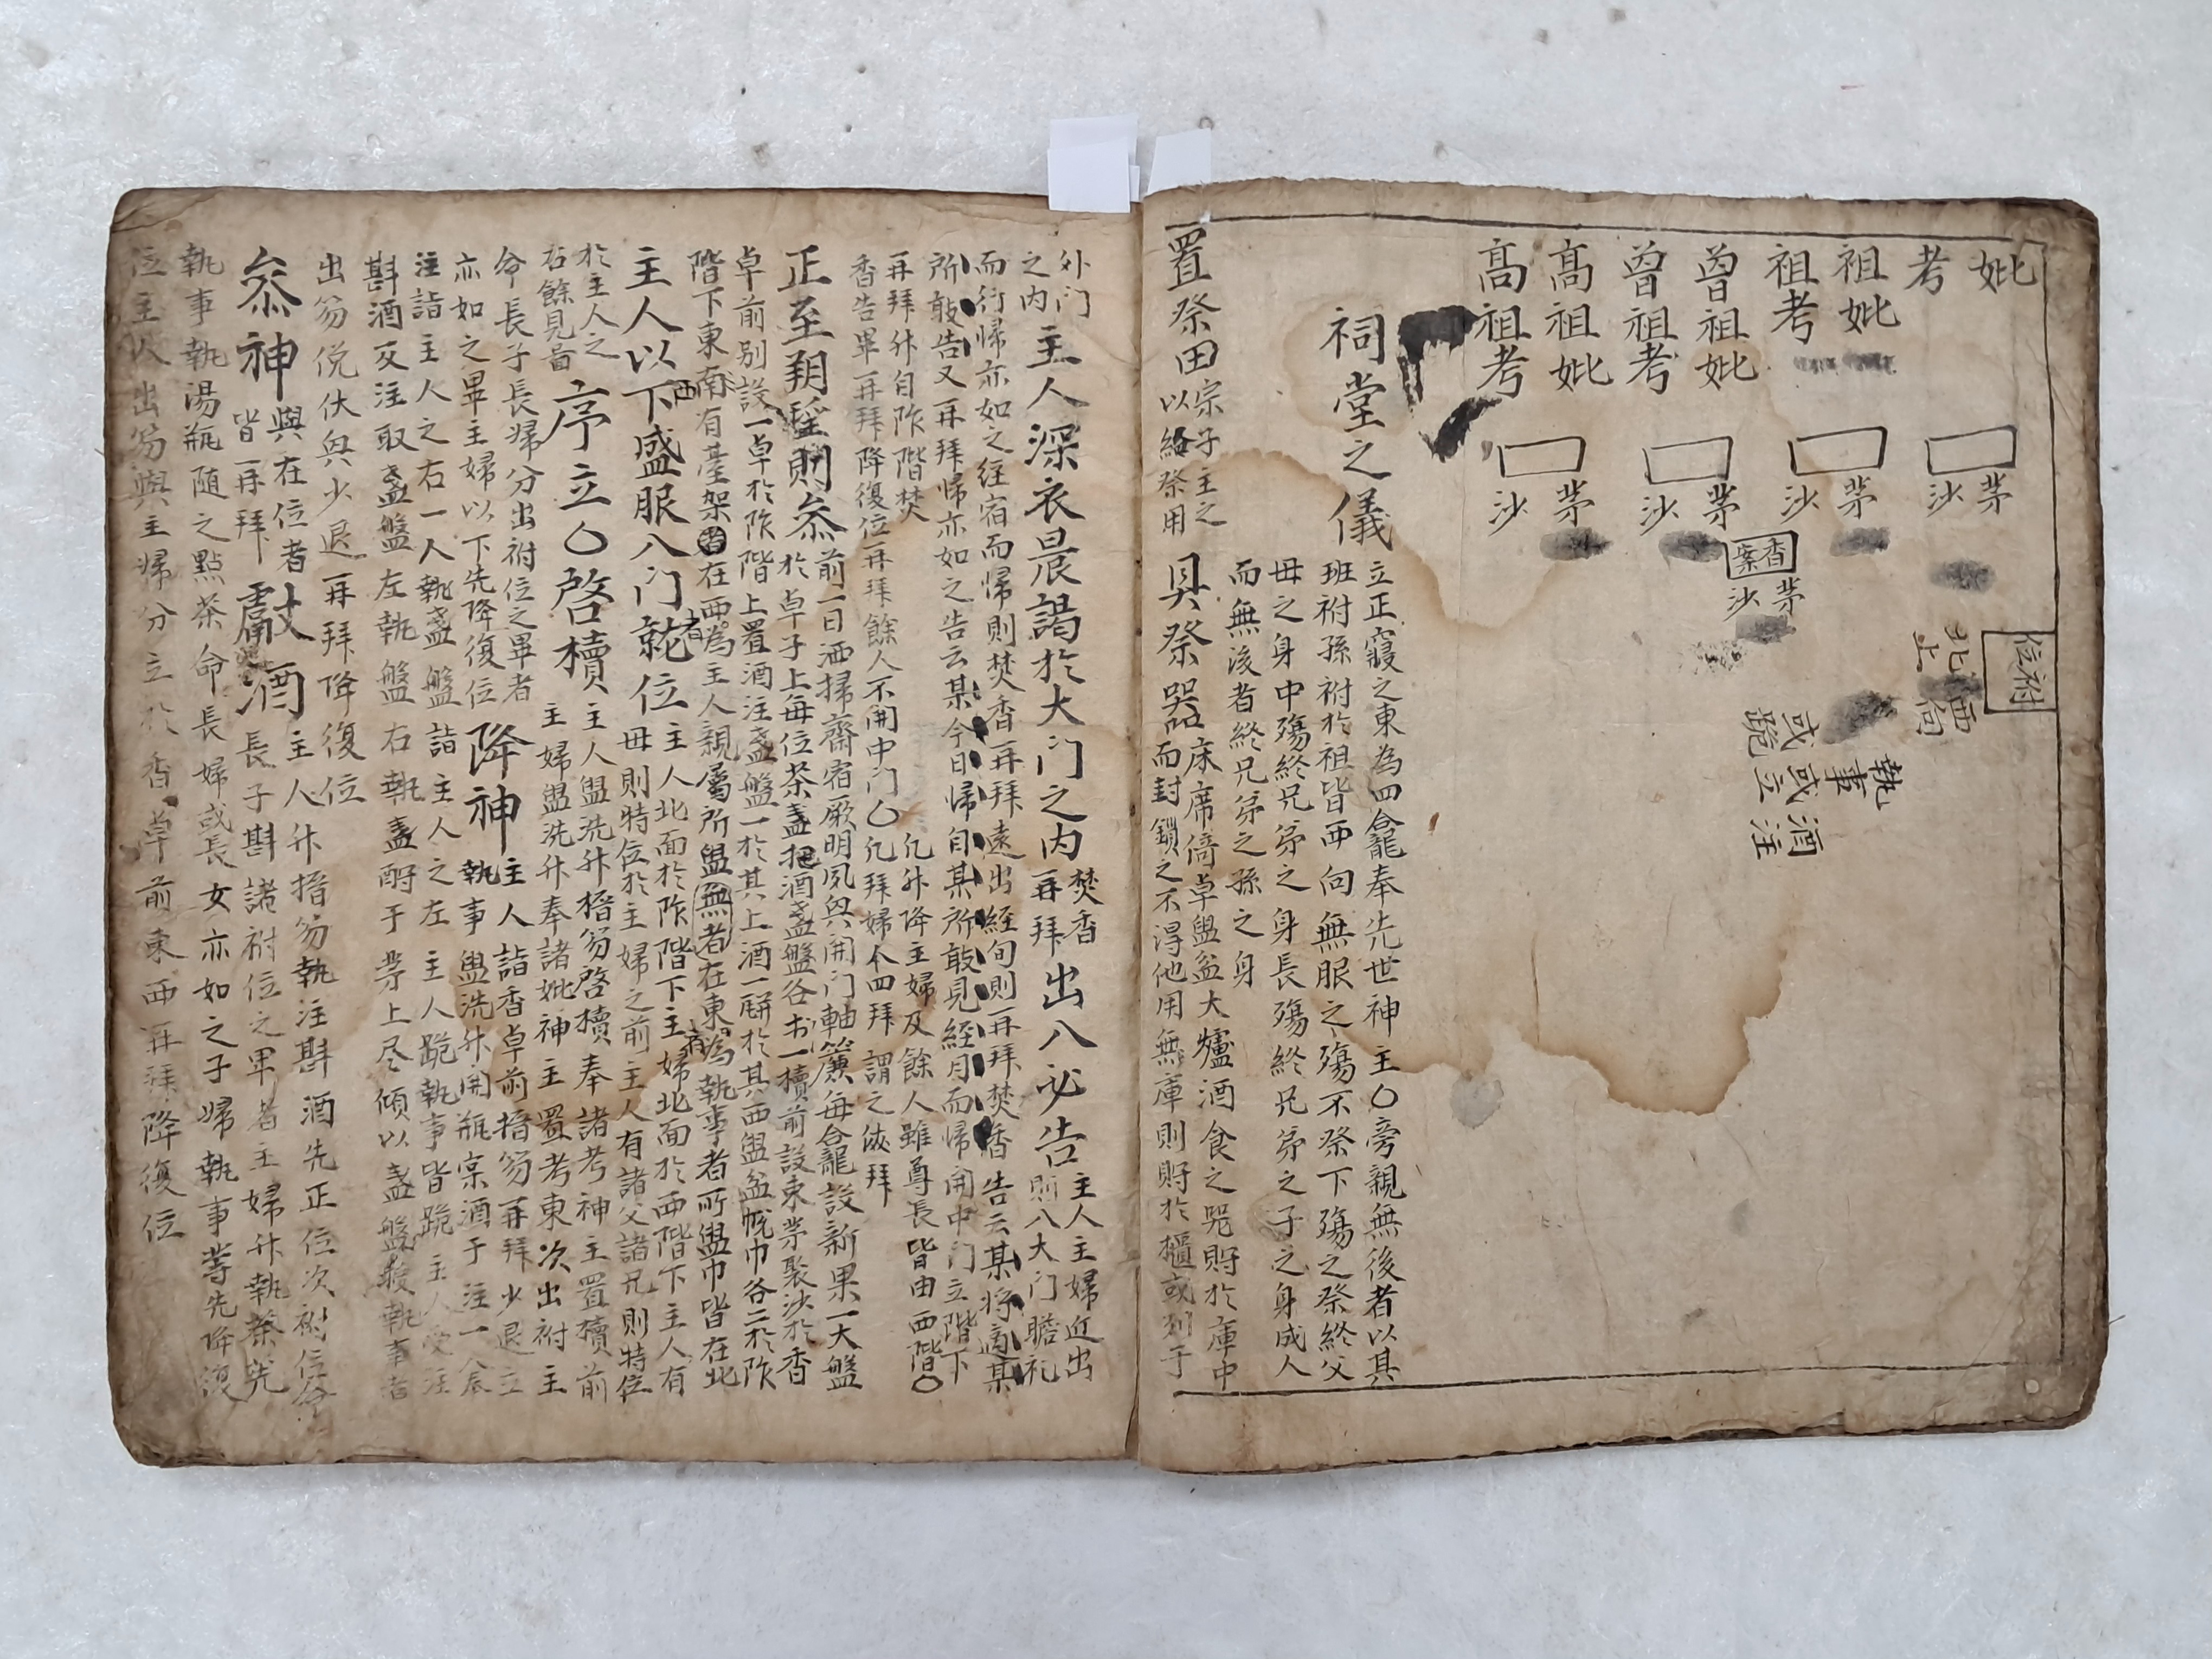 妣
考
祖妣
祖考
曾祖妣
曾祖考
高祖妣
高祖考
茅沙
茅沙
茅沙
茅沙
香案
茅沙
祔位
西向
北上
執事
酒注
或立
或跪
祠堂之儀
立正寢之東為四龕奉先世神主〇旁親無後者以其
班祔孫祔於祖皆西向無服之殤不祭下殤之祭終父
母之身中殤終兄弟之身長殤終兄弟之子之身成人
而無後者終兄弟之孫之身
置祭田
宗子主之
以給祭用
具祭器
床席倚卓盥盆大爐酒食之器貯於庫中
而封鎖之不得他用無庫則貯於櫃或列于
外门
之内
主人深衣晨謁於大门之内
焚香
再拜
出入必告
主人主婦近出
則入大门瞻礼
而行帰亦如之経宿而帰則焚香再拜遠出経旬則再拜焚香告云某将適某
所敢告又再拜帰亦如之告云某今日帰自某所敢見経月而帰開中门立階下
再拜升自阼階焚
香告畢再拜降復位再拜餘人不開中门〇
凡升降主婦及餘人雖尊長皆由西階〇
凡拜婦人四拜謂之俠拜
正至朔望則叅
前一日洒掃齋宿厥明夙興開门軸簾每龕設新果一大盤
於卓子上每位茶盞托酒盞盤各一櫝前設束茅聚沙於香
卓前别設一卓於阼階上置酒注盞盤一於其上酒一甁於其西盥盆帨巾各二於阼
階下東南有臺架者在西為主人親屬所盥無者在東為執事者所盥巾皆在北
主人以下盛服入门就位
主人北面於阼階下主婦北面於西階下主人有
母則特位於主婦之前主人有諸父諸兄則特位
於主人之
右餘見啚
序立〇啓櫝
主人盥洗升搢笏啓櫝奉諸考神主置櫝前
主婦盥洗升奉諸妣神主置考東次出祔主
命長子長婦分出祔位之畢者
亦如之畢主婦以下先降復位
降神
主人詣香卓前搢笏再拜少退立
執事盥洗升開瓶宲酒于注一人
注詣主人之右一人執盞盤詣主人之左主人跪執事皆跪主人受注
斟酒反注取盞盤左執盤右執盞酹于茅上尽傾以盞盤授執事者
出笏俛伏興少退再拜降復位
叅神
與在位者
皆再拜
獻酒
主人升搢笏執注斟酒先正位次祔位命
長子斟諸祔位之卑者主婦升執茶筅
執事執湯瓶随之點茶命長婦或長女亦如之子婦執事等先降復
位主人出笏與主婦分立於香卓前東西再拜降復位